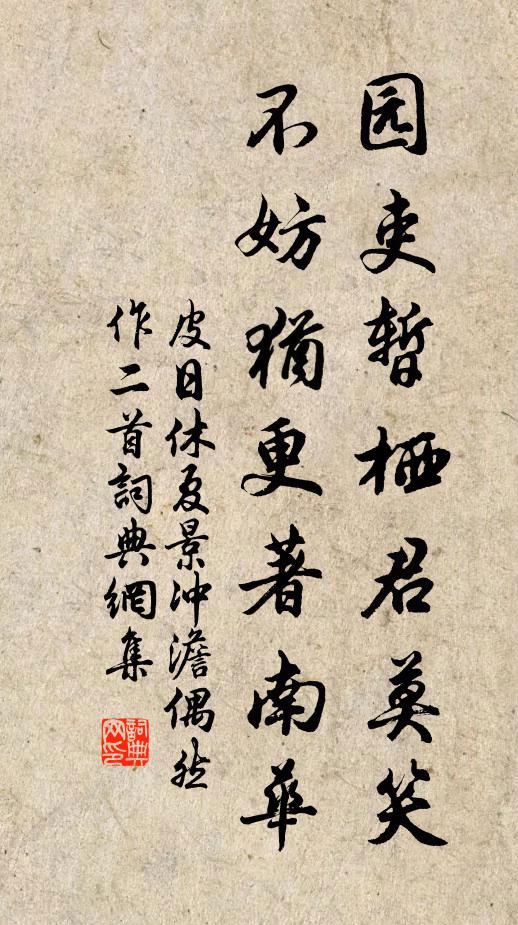 园吏暫栖君莫笑
不妨猶更著南華
皮日休夏景冲澹偶然
作二首詞典網集
詞典网印